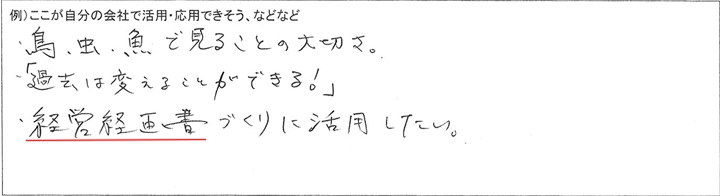 例)ここが自分の会社で活用・応用できそう、などなど
・鳥、虫、魚で見ることの大切さ。
・「過去は変えることができる!」
・経営経画書づくりに活用したい。